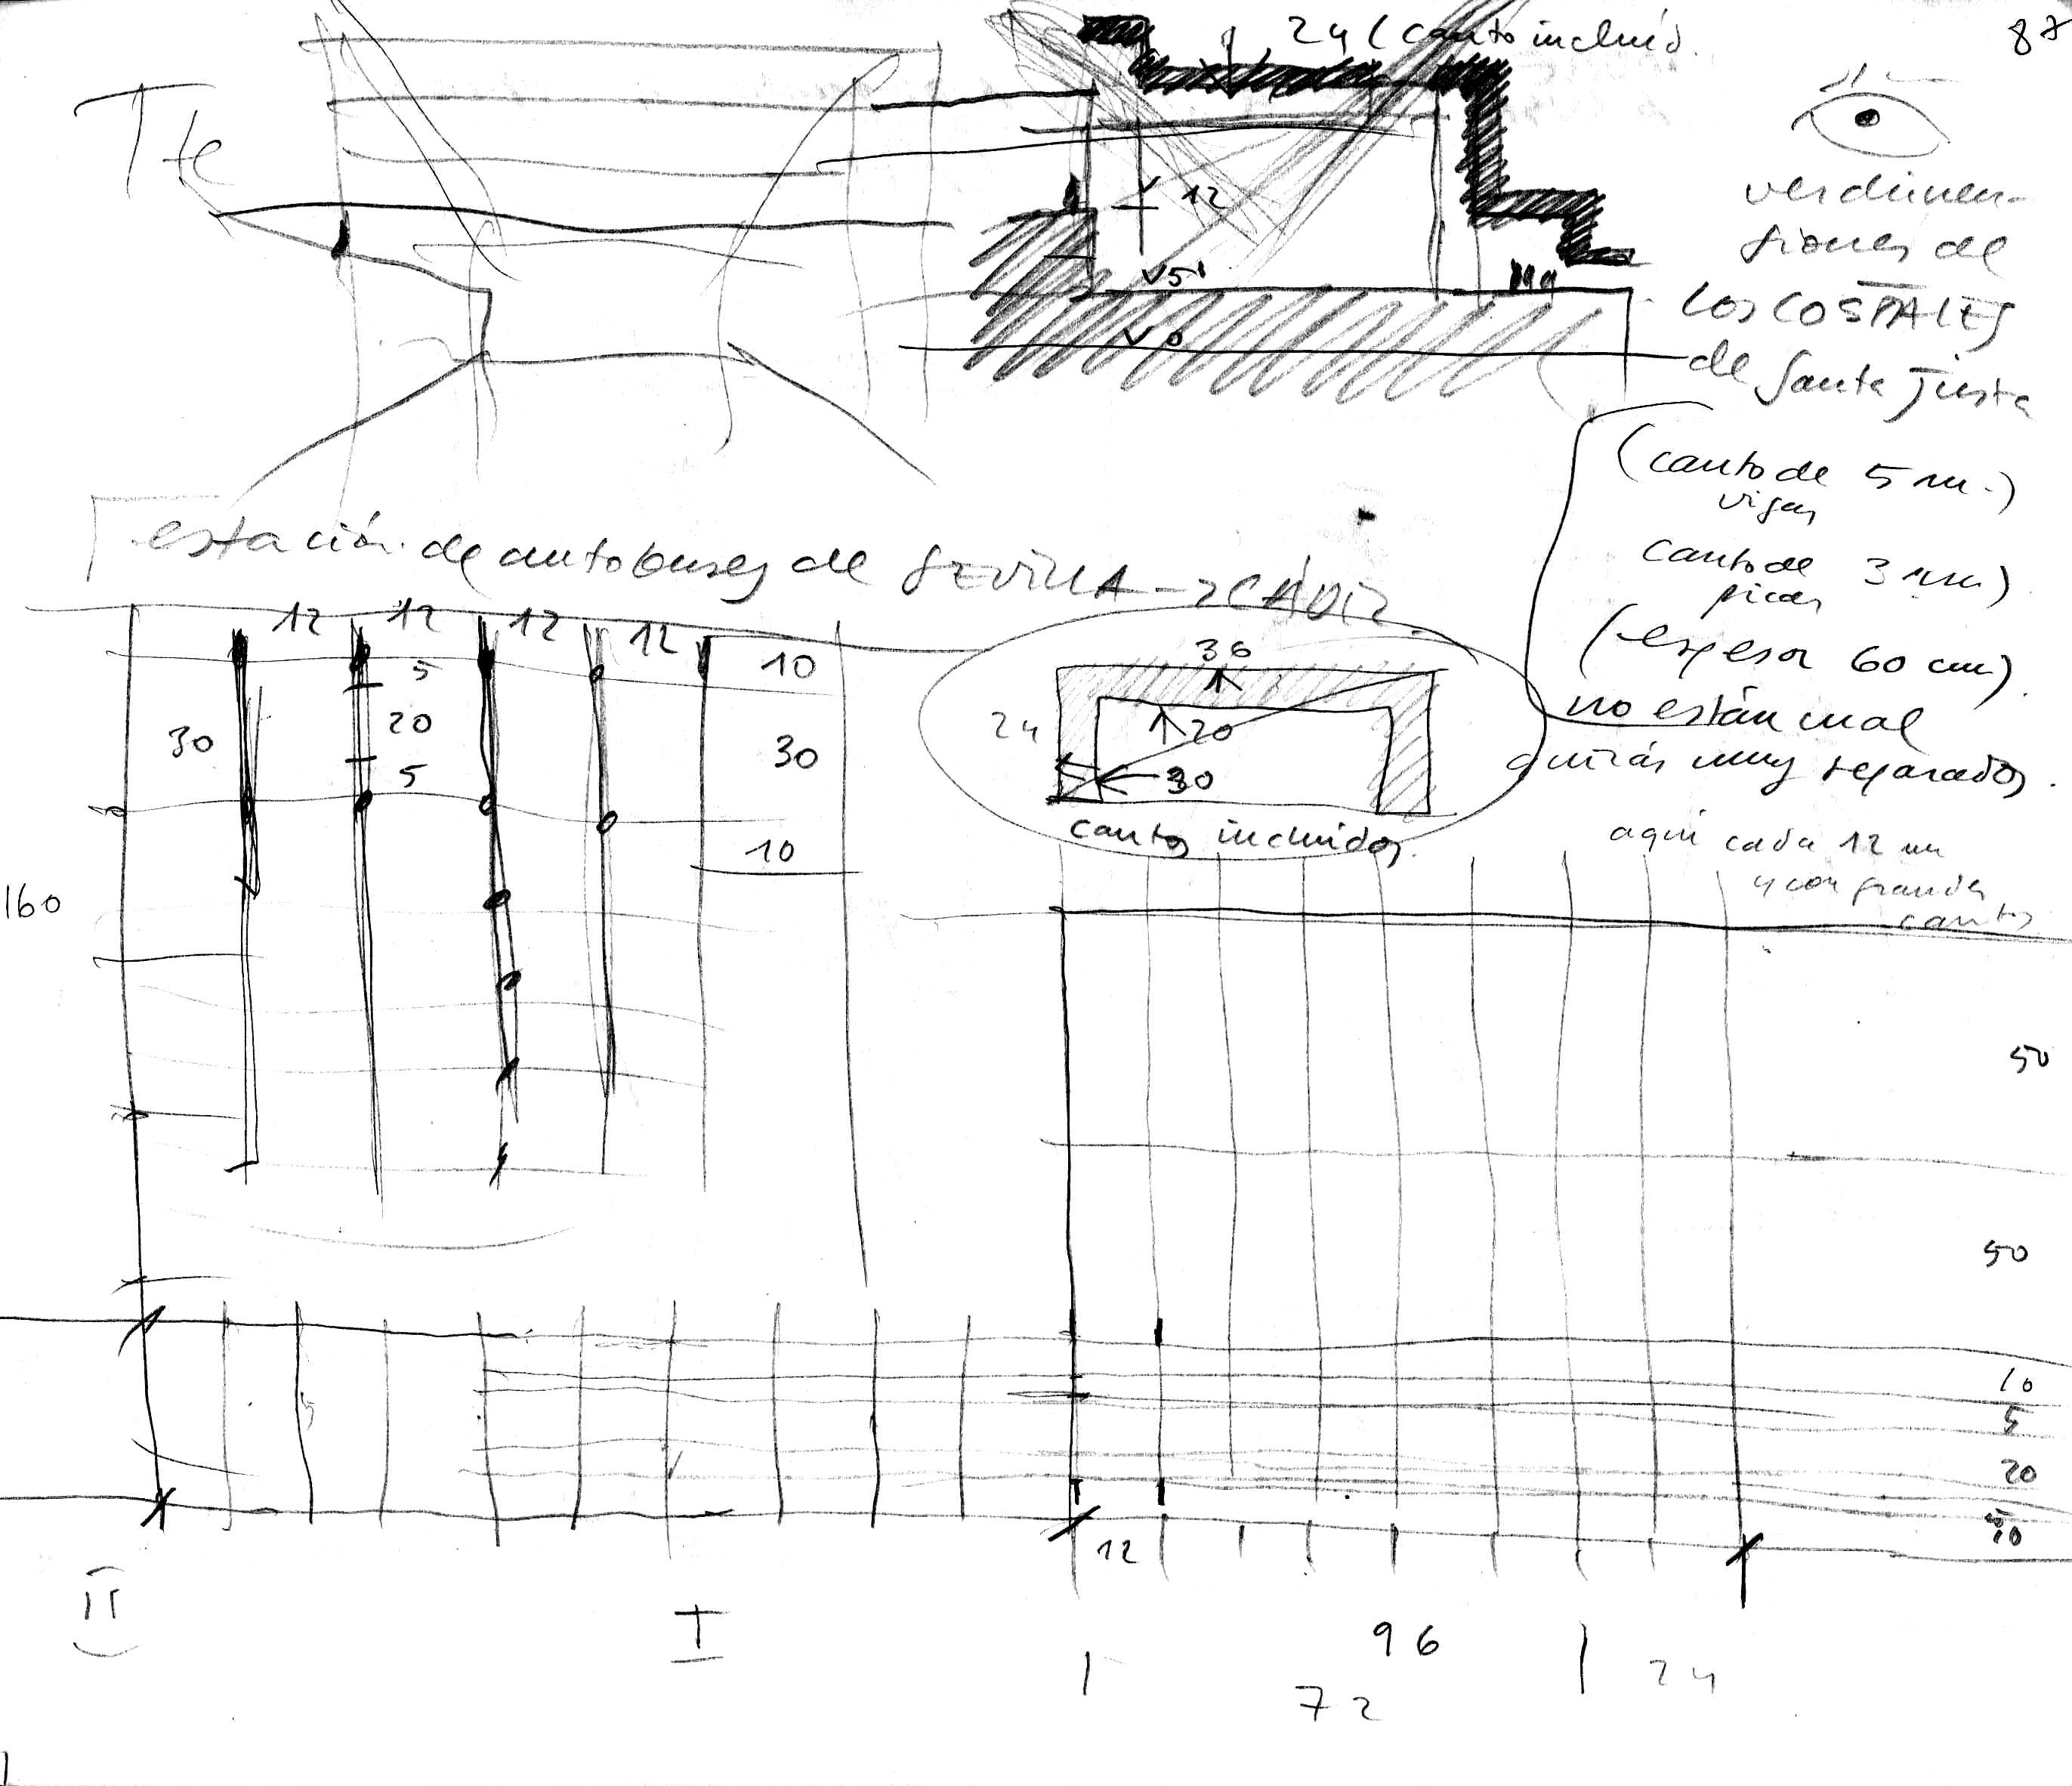 24 (canto incluid.
87
Tte
12
ver dimen-
siones de
LOS COSTALES
de Santa Justa
V5
V0
(canto de 5 m.)
vigas
canto de 3 m)
picas
(espesor 60 cm)
no están mal
quizás muy separados.
aquí cada 12 m
y con grandes
cantos
estación de autobuses de SEVILLA - CÁDIZ
12 12 12 12
5
10
30
20
30
5
10
160
36
24
20
30
cantos incluidos.
50
50
10
5
20
5
10
12
II
I
96
72
24